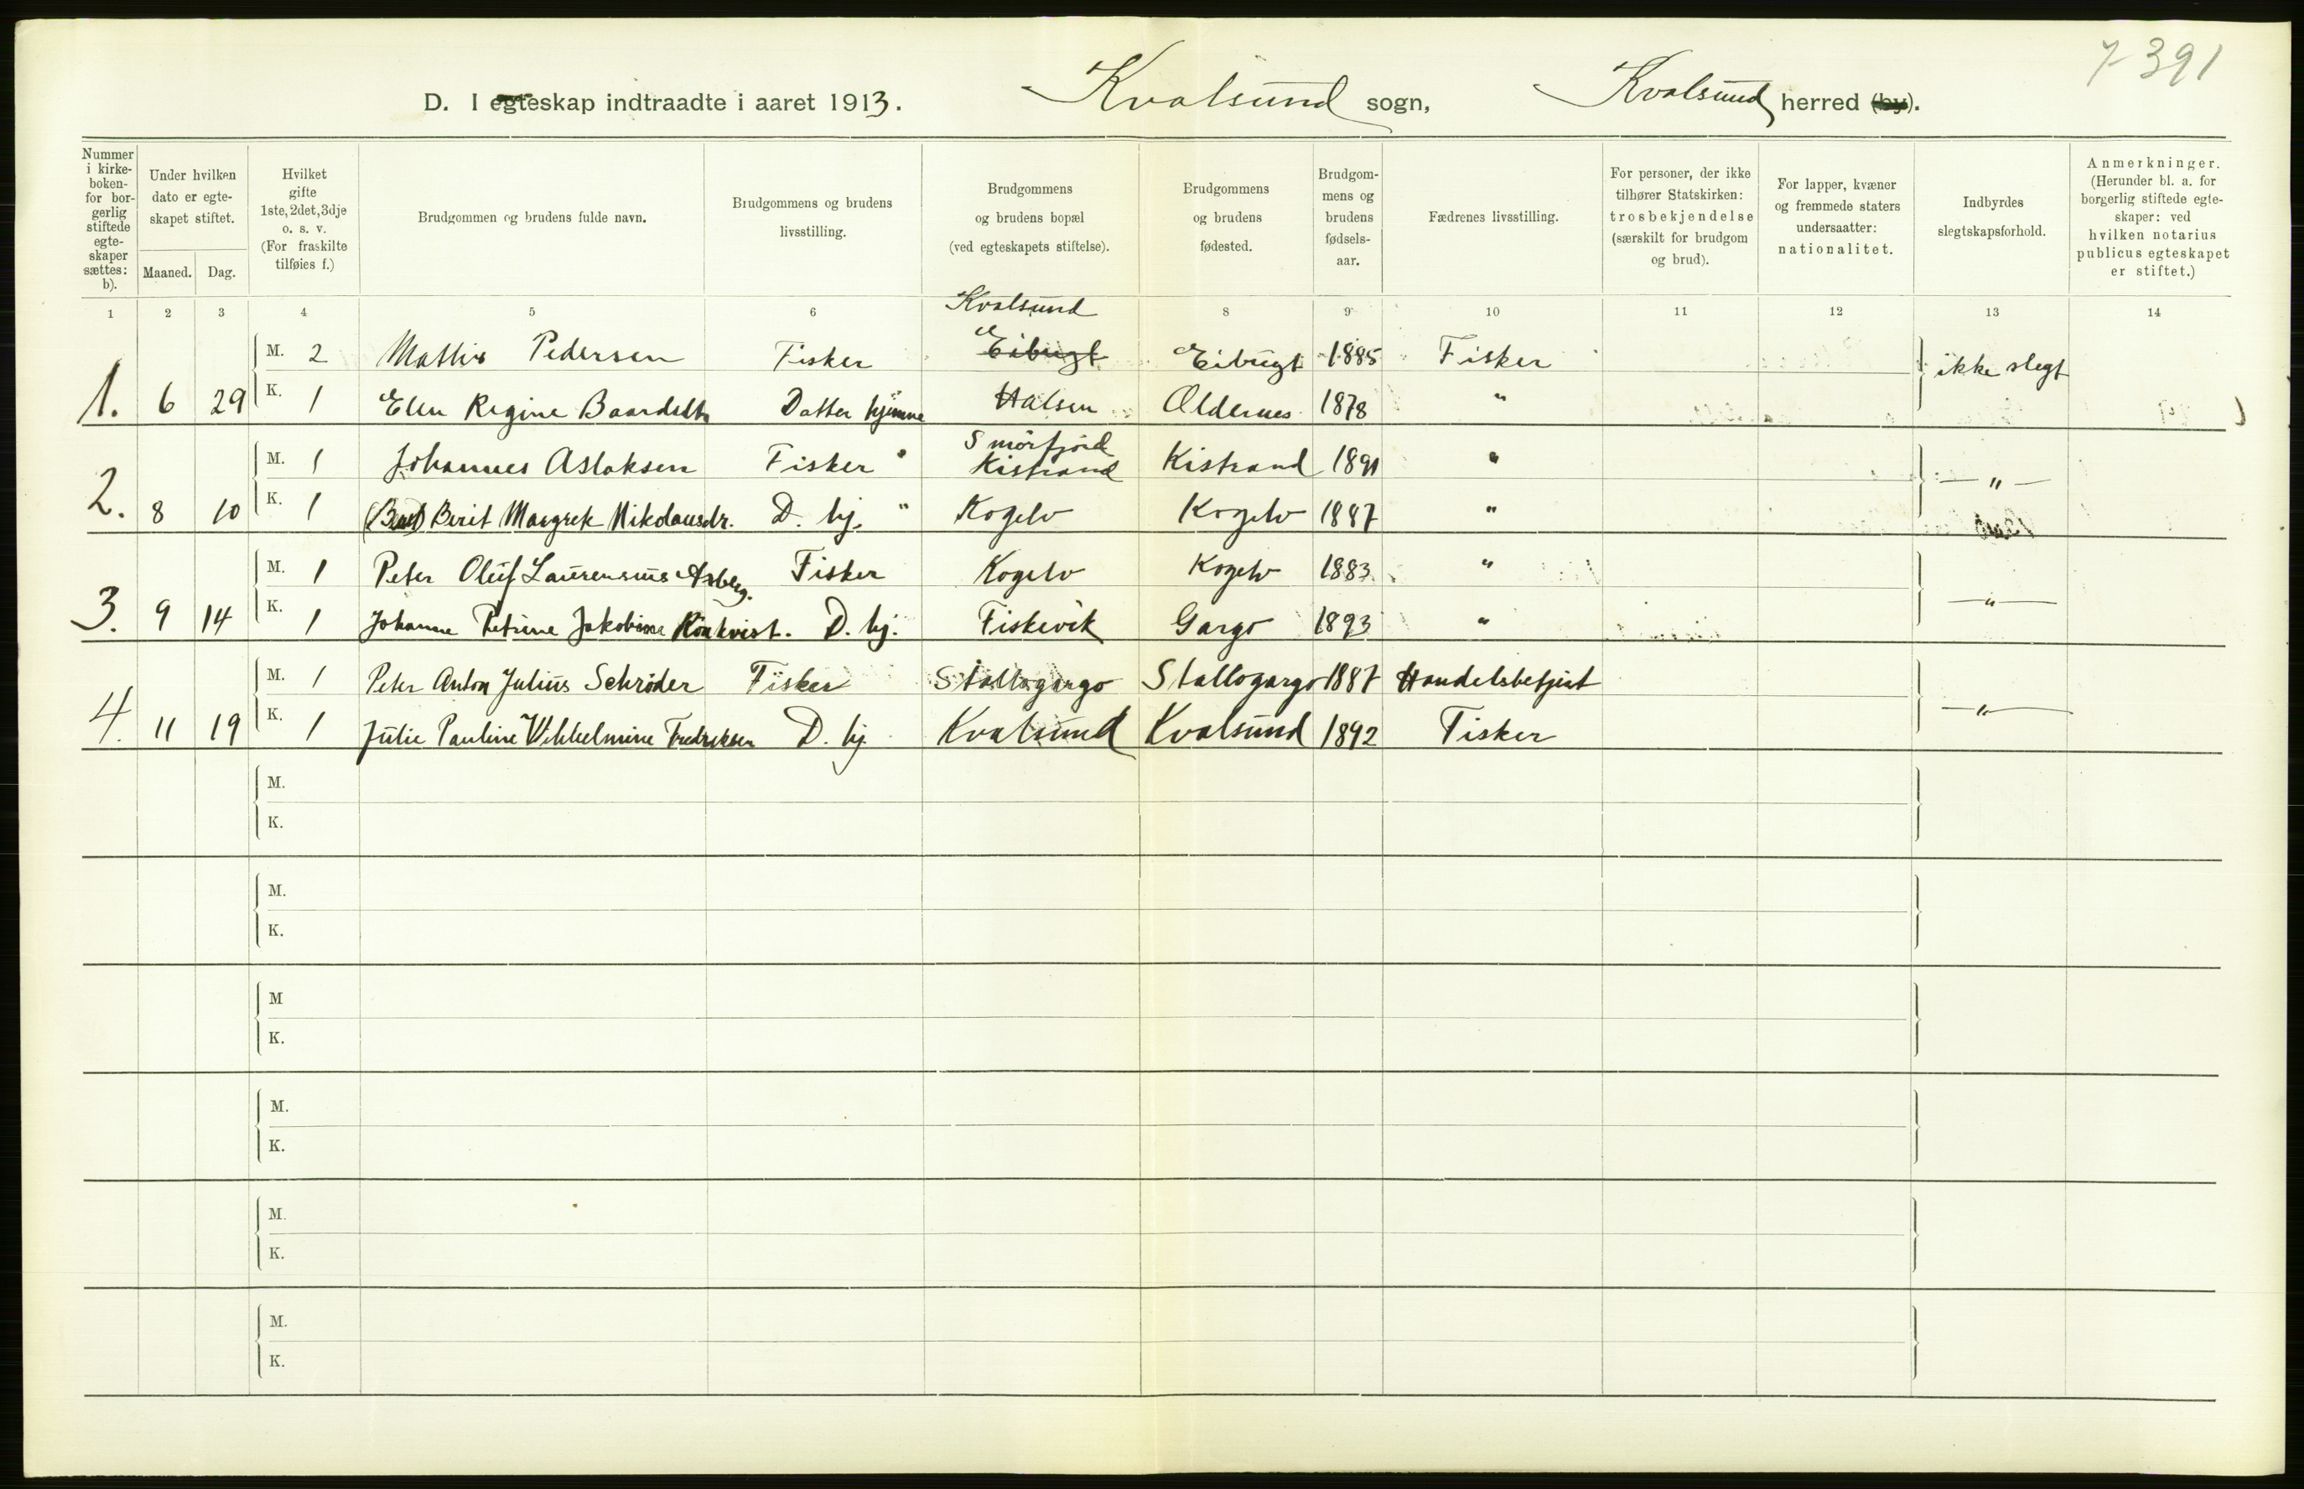 7-391
D. I egteskap indtraadte i aaret 1913. Kvalsund sogn, Kvalsund herred (by).
Nummer i kirkeboken for borgerlig stiftede egteskaper sættes: b).
Under hvilken dato er egteskapet stiftet.
Maaned. Dag.
Hvilket gifte 1ste, 2det, 3dje o. s. v. (For fraskilte tilføies f.)
Brudgommen og brudens fulde navn.
Brudgommens og brudens livsstilling.
Brudgommens og brudens bopæl (ved egteskapets stiftelse).
Brudgommens og brudens fødested.
Brudgommens og brudens fødselsaar.
Fædrenes livsstilling.
For personer, der ikke tilhører Statskirken: trosbekjendelse (særskilt for brudgom og brud).
For lapper, kvæner og fremmede staters undersaatter: nationalitet.
Indbyrdes slegtskapsforhold.
Anmerkninger. (Herunder bl. a. for borgerlig stiftede egteskaper: ved hvilken notarius publicus egteskapet er stiftet.)
1 2 3 4 5 6 7 8 9 10 11 12 13 14
Kvalsund
M. 2 Mathis Pedersen Fisker Eibugt Eibugt 1885 Fisker ikke slegt
1. 6 29 K. 1 Elen Regine Baardsdtr Datter hjemme Halsen Oldernes 1878 "
Smørfjord
M. 1 Johannes Aslaksen Fisker " Kistrand Kistrand 1891 "
2. 8 10 K. 1 Berit Margrete Nikolausdr. D. hj. " Kogelv Kogelv 1887 " — " —
M. 1 Peter Oluf Laurensius Asberg. Fisker Kogelv Kogelv 1883 "
3. 9 14 K. 1 Johanne Petrine Jakobine Kvikvist. D. hj. Fiskevik Gargo 1893 " — " —
M. 1 Peter Anton Julius Schrøder Fisker Stallogargo Stallogargo 1887 Handelsbetjent
4. 11 19 K. 1 Julie Pauline Vilhelmine Fredriksen D. hj. Kvalsund Kvalsund 1892 Fisker — " —
M.
K.
M.
K.
M
K.
M.
K.
M.
K.
M.
K.